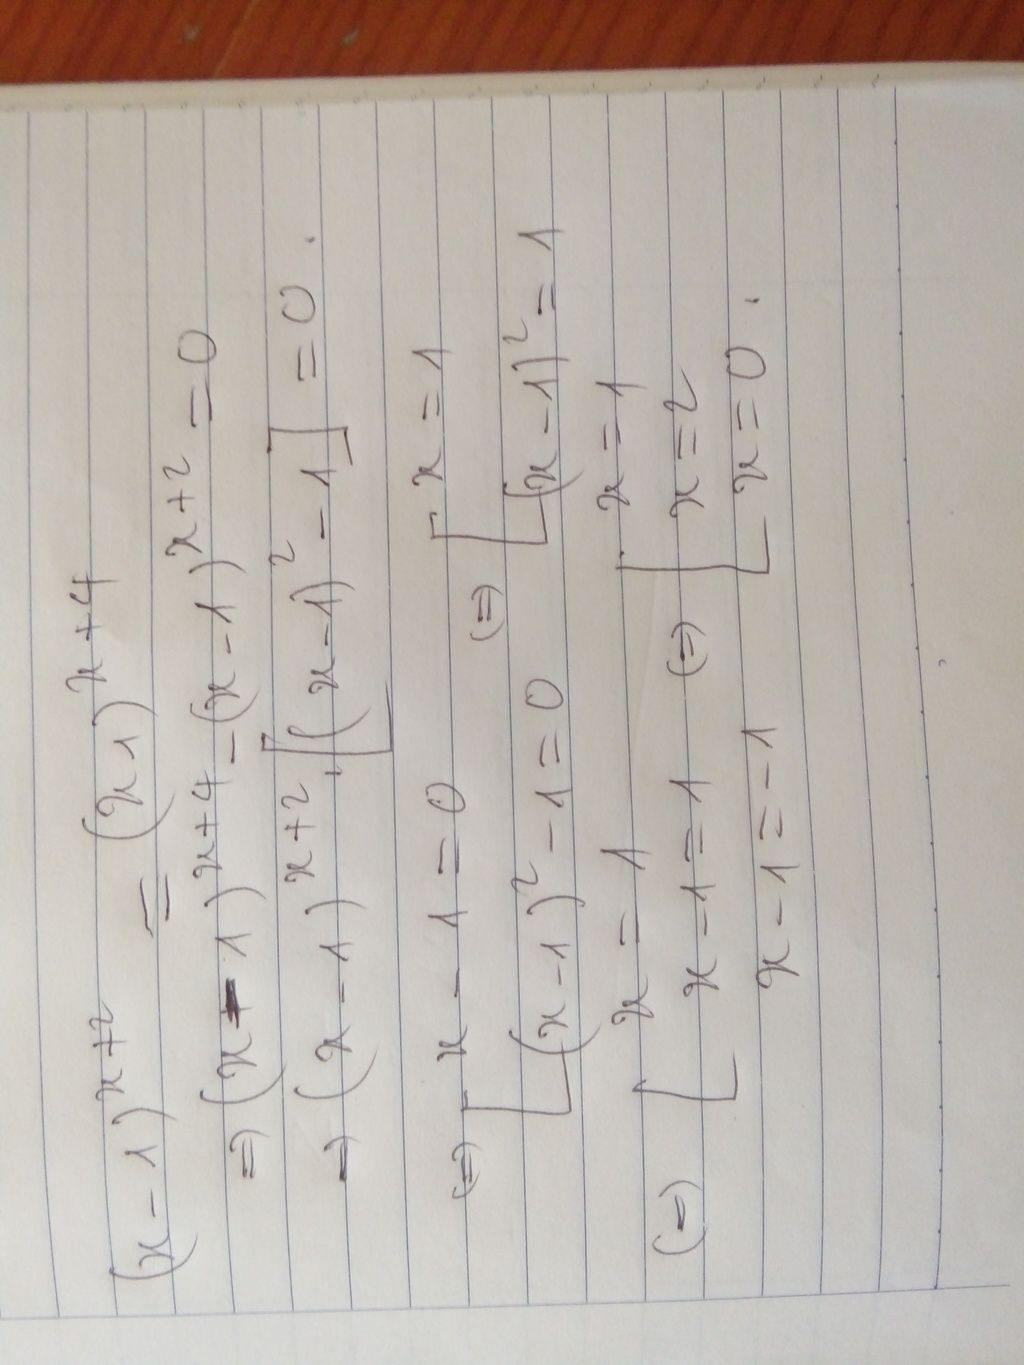 (x - 1)^{x+2} = (x 1)^{x+4}
⇒ (x - 1)^{x+4} - (x - 1)^{x+2} = 0
⇒ (x - 1)^{x+2} . [(x - 1)^2 - 1] = 0 .
(=) [ x - 1 = 0 (=) [ x = 1
(x - 1)^2 - 1 = 0 (x - 1)^2 = 1
x = 1 x = 1
(=) [ x - 1 = 1 (=) [ x = 2
x - 1 = -1 x = 0 .